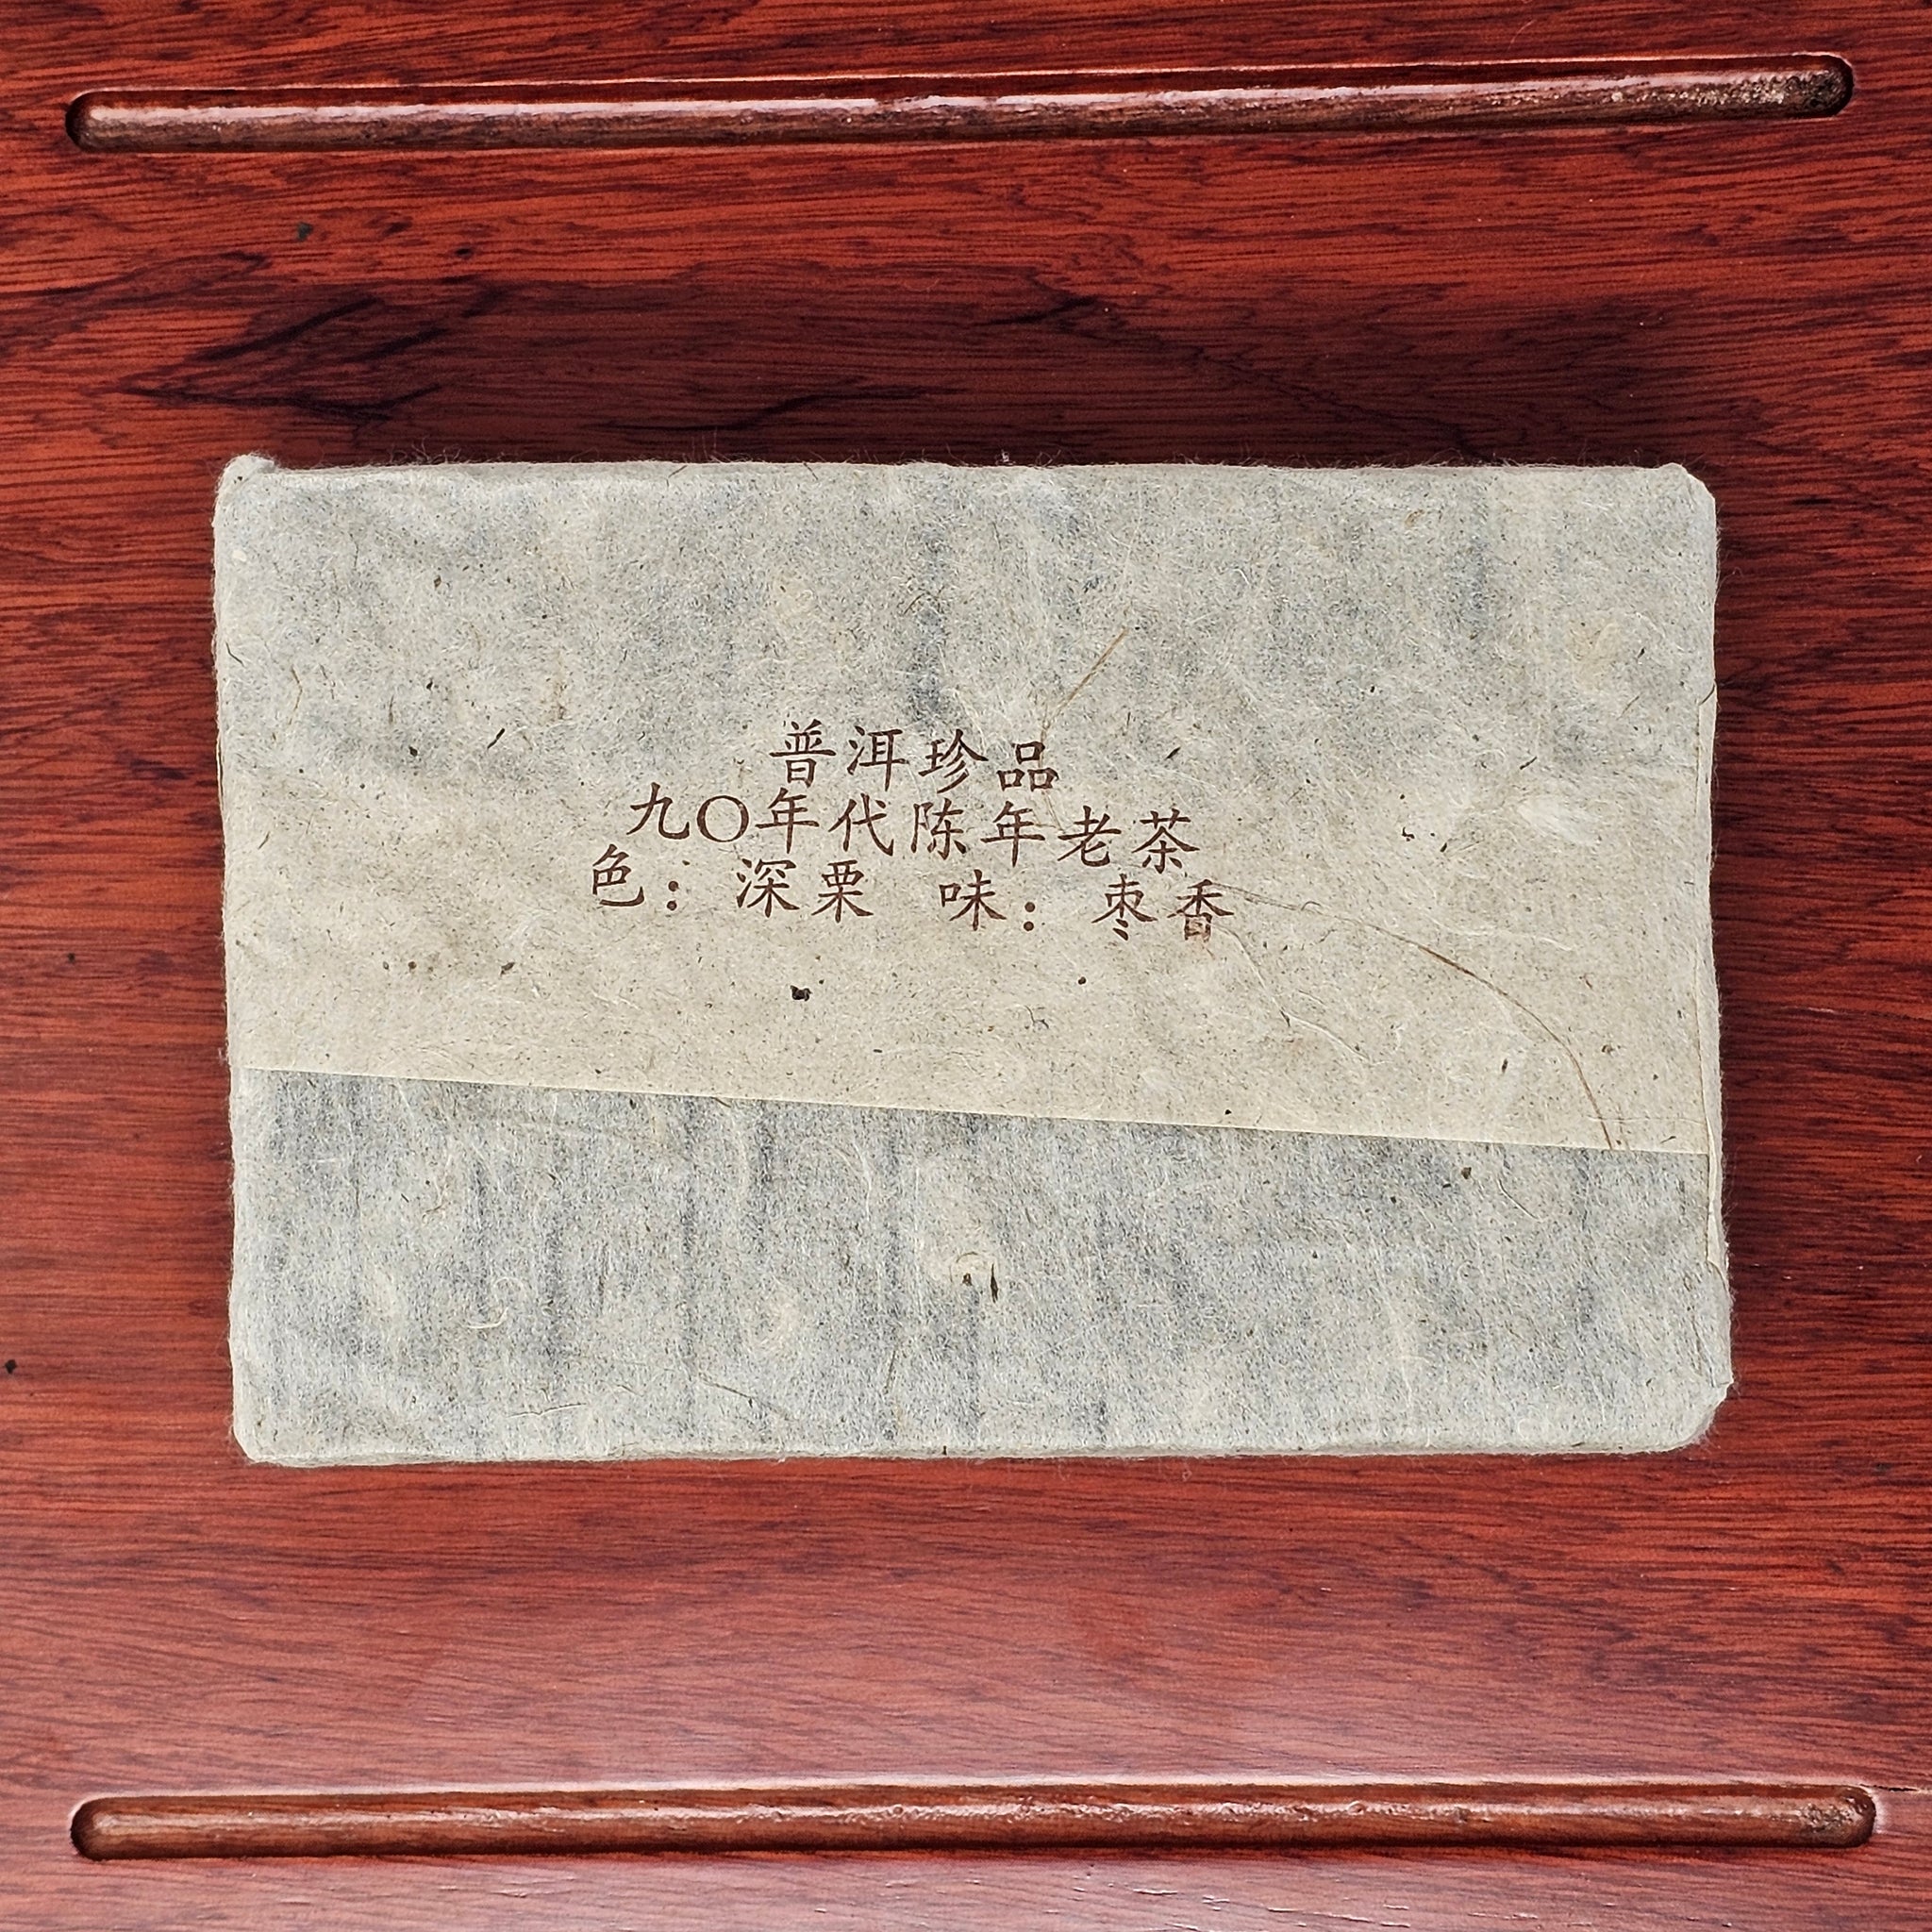 普洱珍品
九〇年代陈年老茶
色：深栗 味：枣香